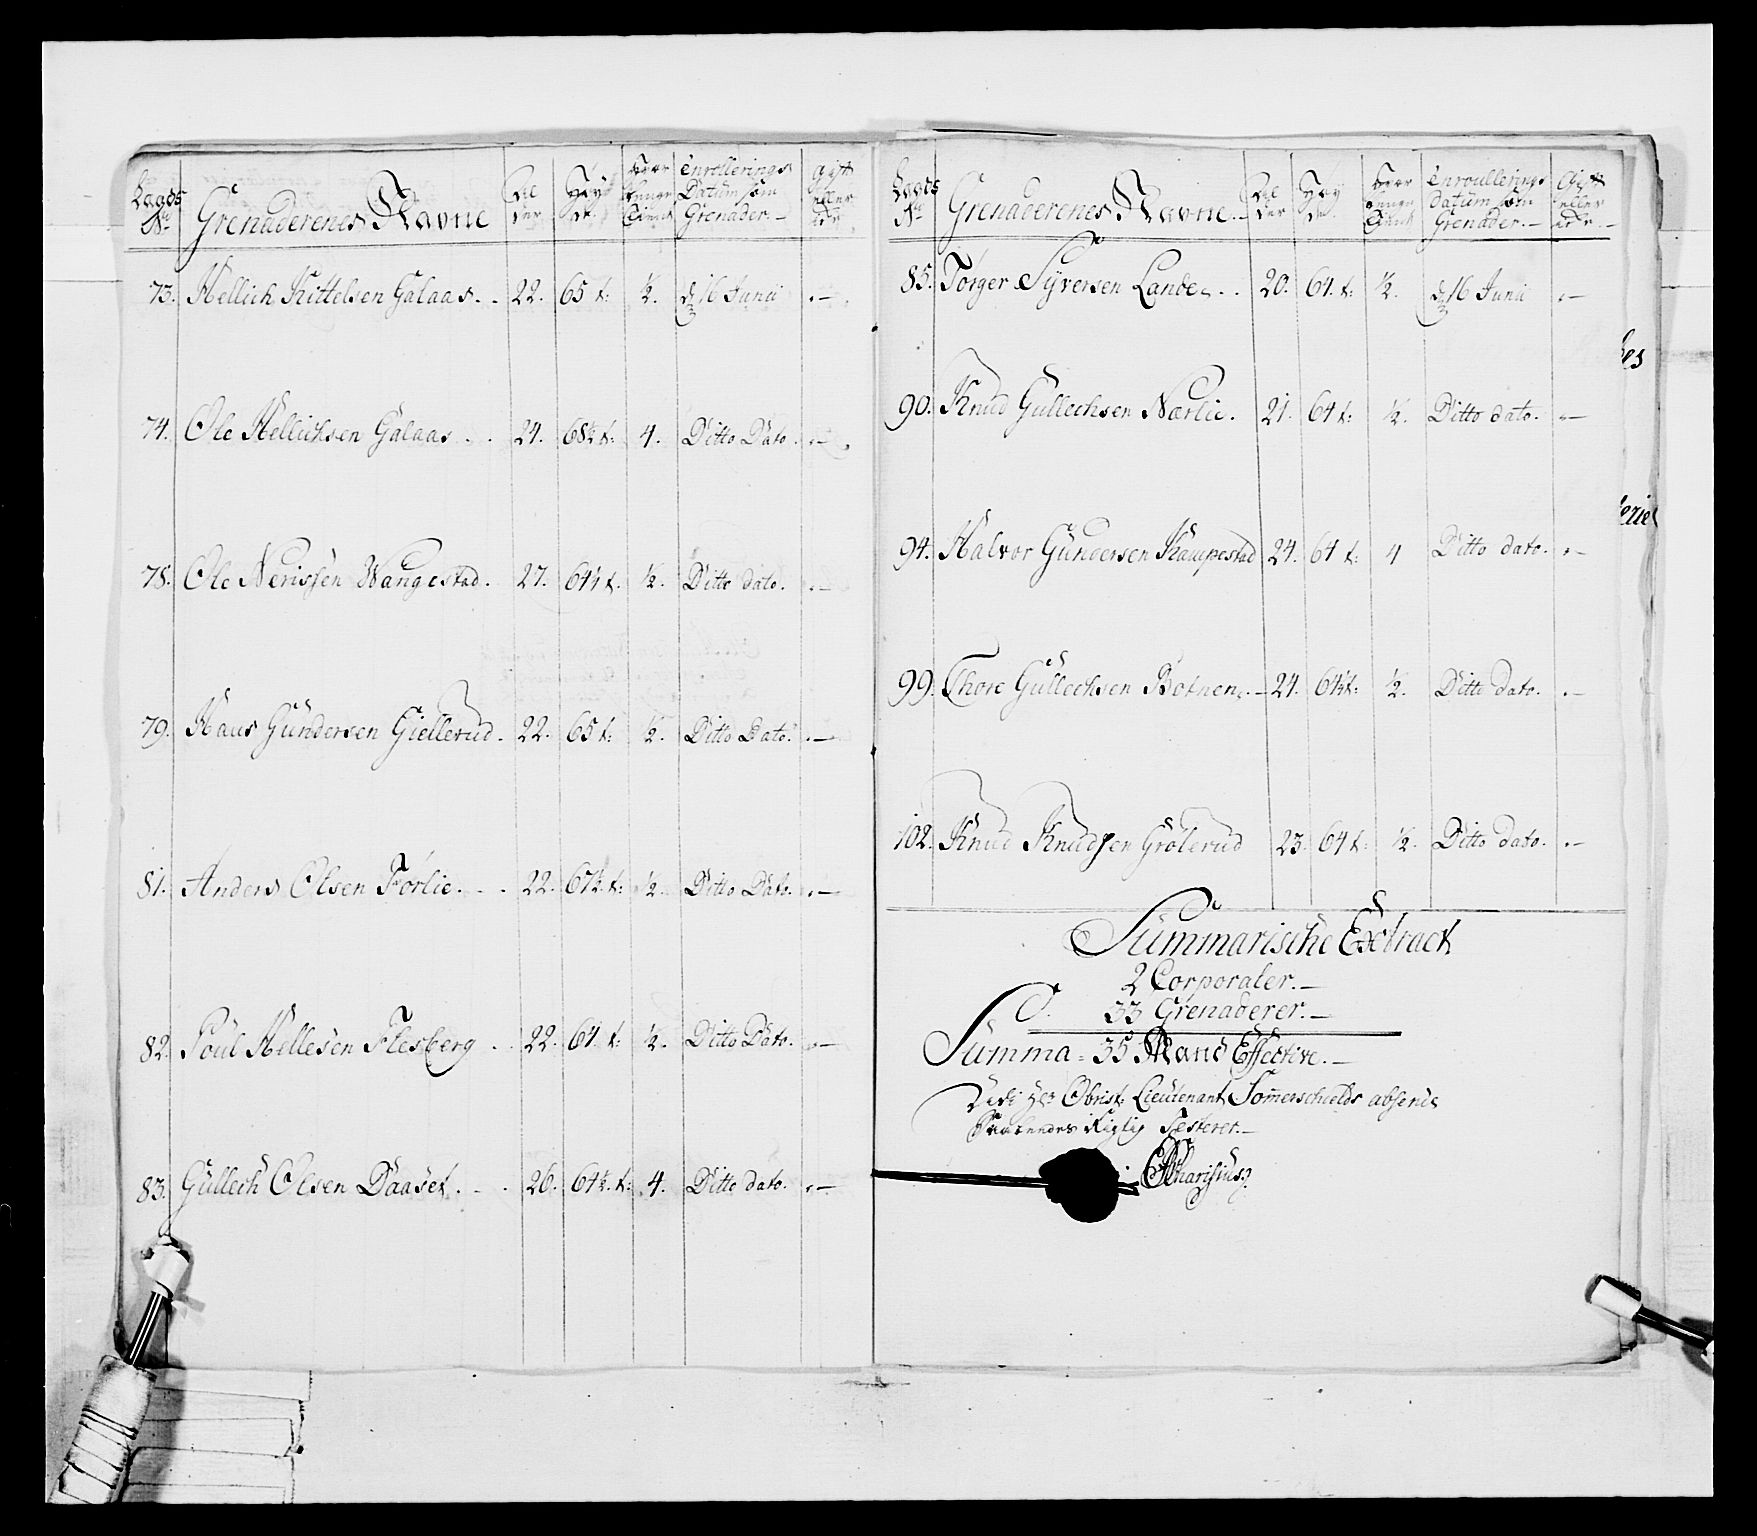 Lægds No Grenaderenes Navne Alder Høyde Enrollerings Datum som Grenader.— Gift eller ei
73. Hellich Kittelsen Galaas. . 22. 65 t: ½. d. 16 Junii .—
74. Ole Hellichsen Galaas . . 24. 68½ t: 4. Ditto Dato. .—
78. Ole Nerissen Wangestad. 27. 64½ t. ½. Ditto dato. .—
79. Hans Gundersen Giellerud. 22. 65 t: ½. Ditto Dato. .—
81. Anders Olsen Førlie. . . 22. 67½ t: ½. Ditto Dato. .—
82. Poul Hellesen Flesberg . . 22. 64. t: ½. Ditto Dato. .—
83. Gullech Olsen Daaset. . . 26. 64½. t: 4. Ditto dato. .—
Lægds No Grenaderenes Navne.— Alder Høyde Enroullerings datum som Grenader.— Gift eller ei.—
85. Torger Syversen Lande. . . 20. 64. t: ½. d. 16 Junii .—
90. Knud Gullechsen Nærlie. 21. 64 t: ½. Ditto dato. .—
94. Halvor Gundersen Kampestad 24. 64 t. 4 Ditto dato. .—
99. Thore Gullechsen Botnen.— 24. 64½ t: ½. Ditto dato. .—
102. Knud Knudsen Grølerud 23. 64 t. ½. Ditto dato. .—
Summarische Extract
2 Corporaler.—
33 Grenaderer.—
Summa = 35 Mand Effective.—
Udi Hr Obrist: Lieutenant Sommerschields absence
Rigtig Testerer.—